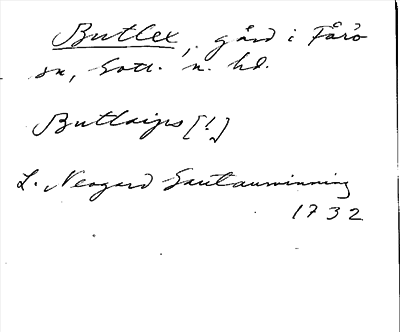 Butlex, gård i Fårö
sn, Gotl. n. hd.
Butlaigs [!]
L. Neogard Gautauminning
1732